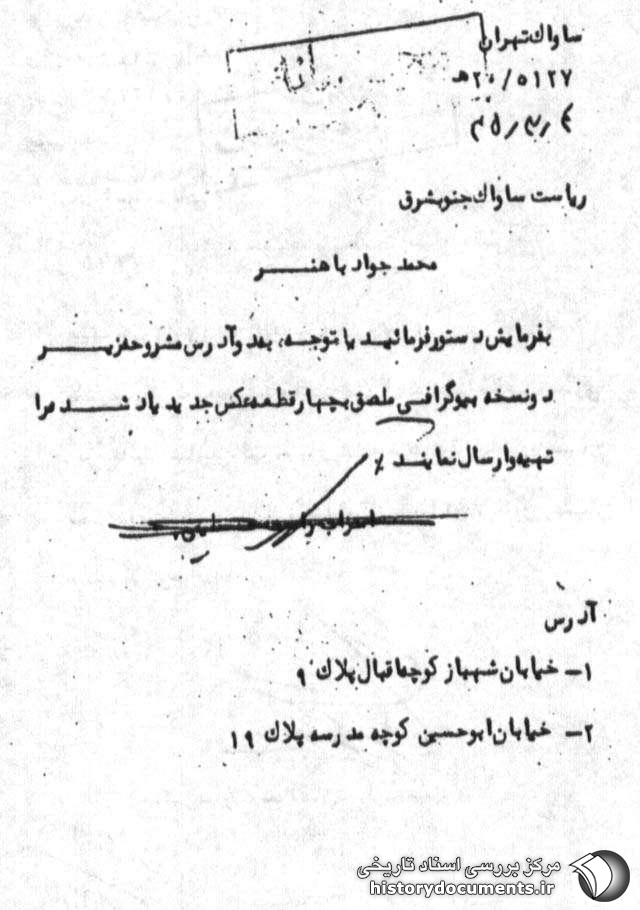 ساواك تهران
۲۰/۵۱۲۷ﻫ
۴۵٫۳٫۴
ریاست ساواك جنوبشرق
محمد جواد باهنر
بفرمایش دستور فرمائید با توجه به دو آدرس مشروحه زیر
دو نسخه بیوگرافی ملصق بچهار قطعه عکس جدید یاد شده را
تهیه و ارسال نمایند ٪
آدرس
۱ـ خیابان شهباز کوچه اقبال پلاك ۹
۲ـ خیابان ابوحسین کوچه مدرسه پلاك ۱۹
مرکز بررسی اسناد تاریخی
historydocuments.ir